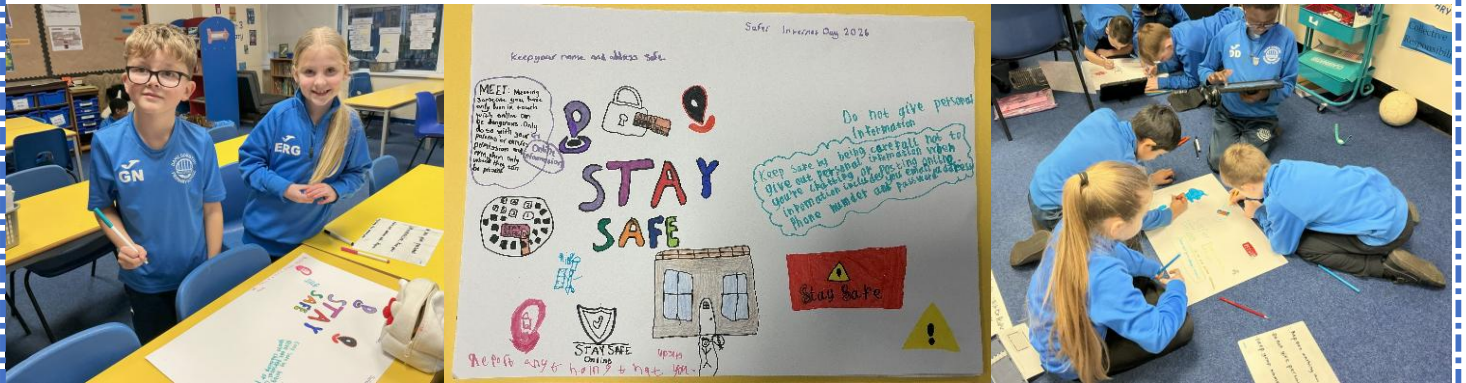 GN
ERG
STAY
SAFE
Safer Internet Day 2026
Keep your name and address safe.
MEET: Meeting
someone you have
only been in touch
with online can
be dangerous. Only
do so with your
parents or carers
permission and
even then only
when they can
be present
Do not give personal
information
Keep safe by being carefull not to
give out personal information when
you're chatting or posting online
information includes your email address
Phone number and password
STAY
SAFE
Stay Safe
STAY SAFE
Online
Report any t hoing t hat upsets you.
DD